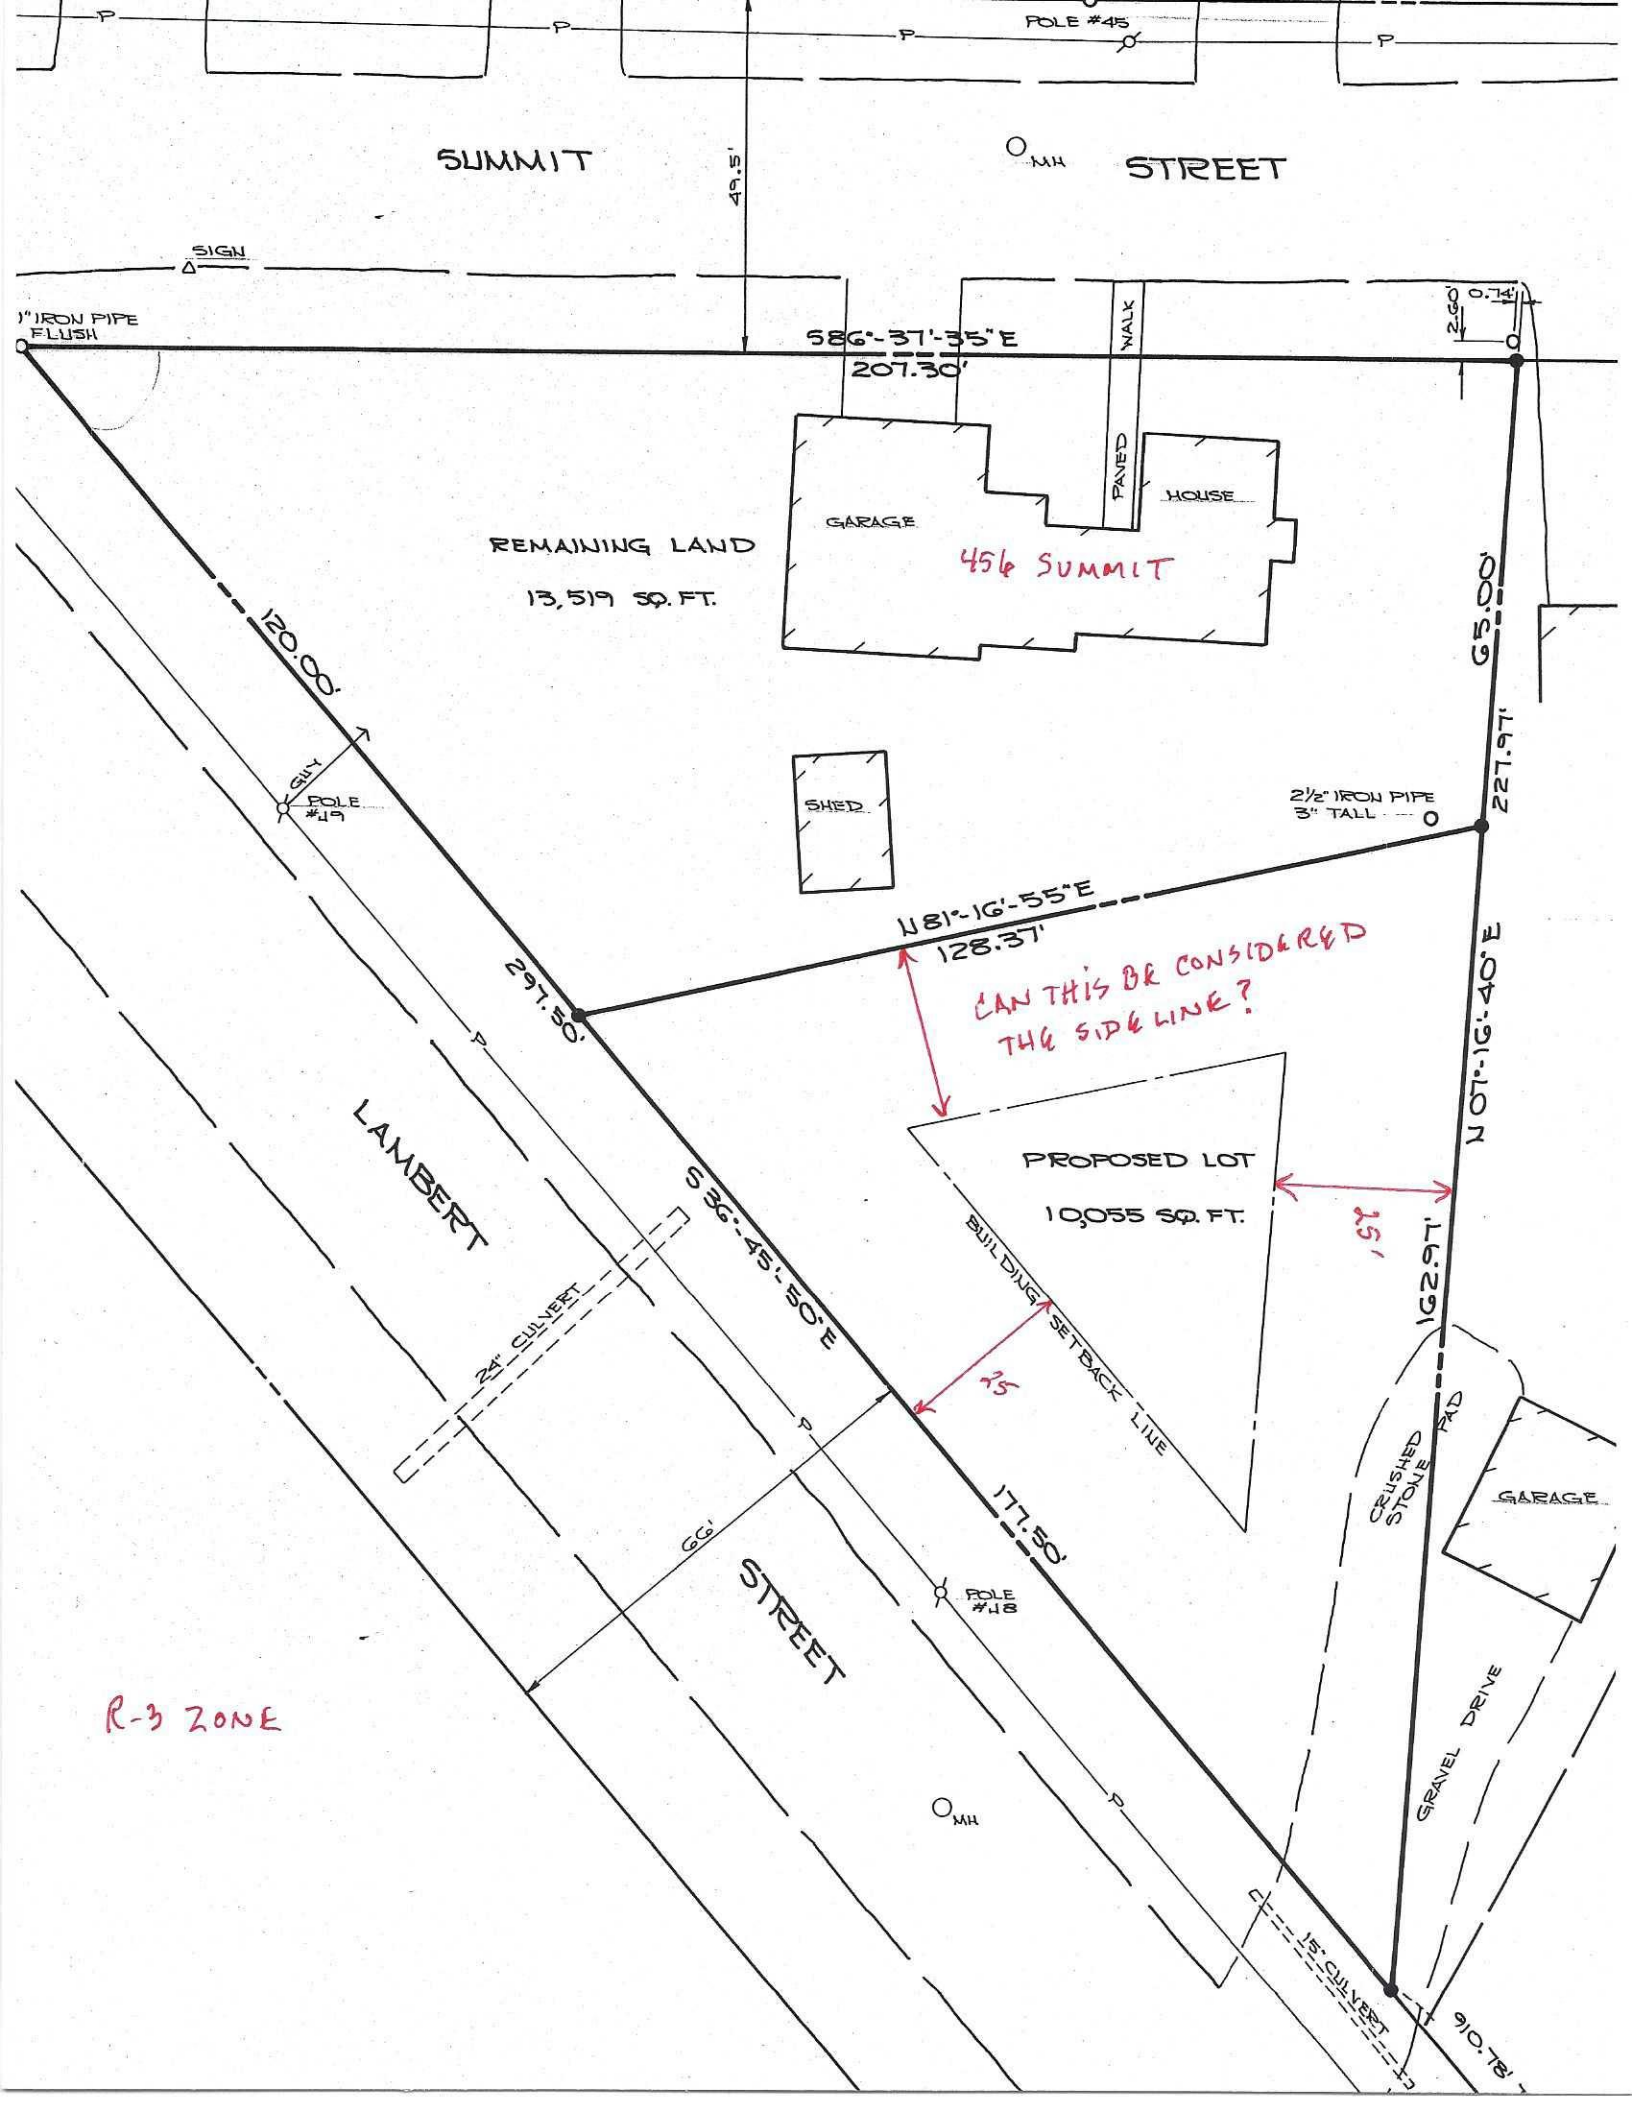 P
P
P
P
POLE #45
SUMMIT
STREET
MH
49.5'
SIGN
1" IRON PIPE
FLUSH
S86°-37'-35"E
207.30'
WALK
PAVED
2.60'
0.74'
GARAGE
HOUSE
456 SUMMIT
REMAINING LAND
13,519 SQ. FT.
65.00'
120.00'
GUY
POLE
#49
SHED
227.97'
2½" IRON PIPE
3" TALL
N81°-16'-55"E
128.37'
CAN THIS BE CONSIDERED
THE SIDE LINE?
297.50'
P
N07°-16'-40"E
LAMBERT
S36°-45'-50"E
PROPOSED LOT
10,055 SQ. FT.
25'
BUILDING SETBACK LINE
162.97'
24" CULVERT
25
P
CRUSHED
STONE
PAD
GARAGE
177.50'
66'
POLE
#48
STREET
R-3 ZONE
GRAVEL DRIVE
MH
P
15" CULVERT
910.78'